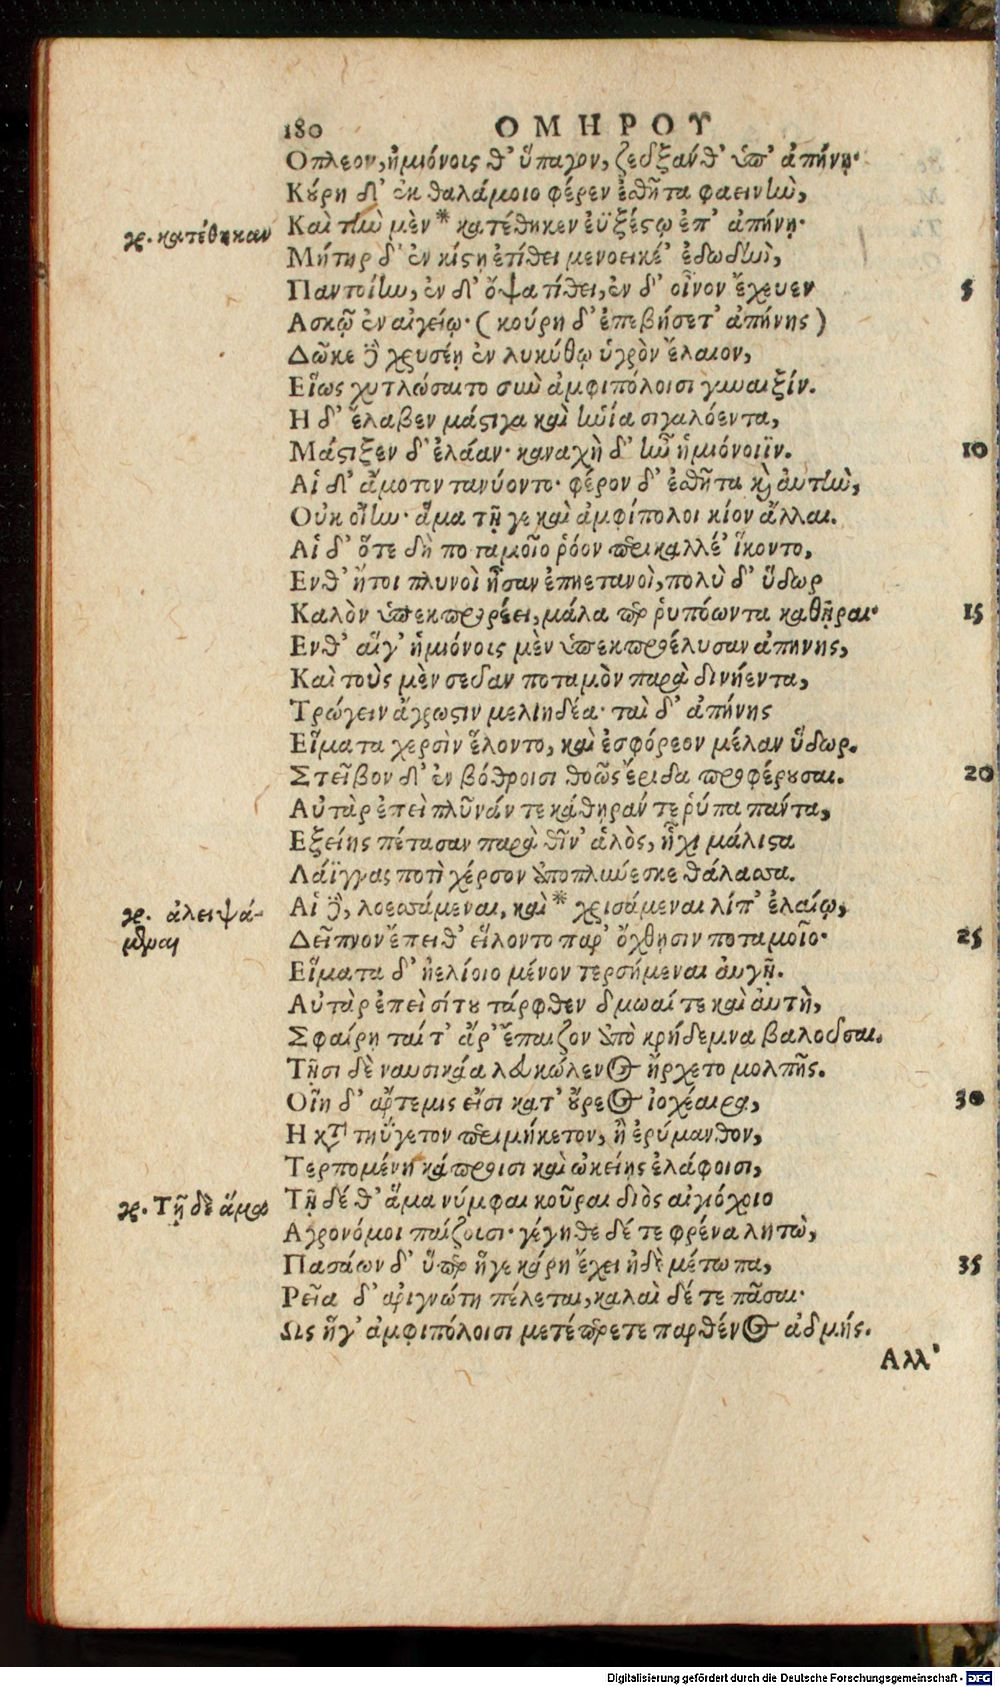 180 ΟΜΗΡΟΥ
Οπλεον, ἡμιόνοις θ' ὕπαγον, ζεῦξάν θ' ὑπ' ἀπήνῃ·
Κούρη δ' ἐκ θαλάμοιο φέρεν ἐσθῆτα φαεινὴν,
γρ. κατέθηκαν
Καὶ τὴν μὲν * κατέθηκεν ἐϋξέστῳ ἐπ' ἀπήνῃ·
Μήτηρ δ' ἐν κίστῃ ἐτίθει μενοεικέ' ἐδωδὴν,
Παντοίην, ἐν δ' ὄψα τίθει, ἐν δ' οἶνον ἔχευεν 5
Ασκῷ ἐν αἰγείῳ· (κούρη δ' ἐπεβήσετ' ἀπήνης)
Δῶκε δὲ χρυσέῃ ἐν λυκύθῳ ὑγρὸν ἔλαιον,
Εἵως χυτλώσαιτο σὺν ἀμφιπόλοισι γυναιξίν.
Η δ' ἔλαβεν μάστιγα καὶ ἡνία σιγαλόεντα,
Μάστιξεν δ' ἐλάαν· καναχὴ δ' ἦν ἡμιόνοιϊν. 10
Αἱ δ' ἄμοτον τανύοντο· φέρον δ' ἐσθῆτα καὶ αὐτὴν,
Οὐκ οἴην· ἅμα τῇ γε καὶ ἀμφίπολοι κίον ἄλλαι.
Αἱ δ' ὅτε δὴ ποταμοῖο ῥόον περικαλλέ' ἵκοντο,
Ενθ' ἤτοι πλυνοὶ ἦσαν ἐπηετανοὶ, πολὺ δ' ὕδωρ
Καλὸν ὑπεκπρορέει, μάλα περ ῥυπόωντα καθῆραι· 15
Ενθ' αἵγ' ἡμιόνοις μὲν ὑπεκπροέλυσαν ἀπήνης,
Καὶ τοὺς μὲν σεῦαν ποταμὸν παρὰ δινήεντα,
Τρώγειν ἄγρωστιν μελιηδέα· ταὶ δ' ἀπήνης
Εἵματα χερσὶν ἕλοντο, καὶ ἐσφόρεον μέλαν ὕδωρ.
Στεῖβον δ' ἐν βόθροισι θοῶς ἔριδα προφέρουσαι. 20
Αὐτὰρ ἐπεὶ πλῦνάν τε κάθηράν τε ῥύπα πάντα,
Εξείης πέτασαν παρὰ θῖν' ἁλὸς, ἧχι μάλιστα
Λάϊγγας ποτὶ χέρσον ἀποπλύνεσκε θάλασσα.
γρ. ἀλειψά-
μεναι
Αἱ δὲ, λοεσσάμεναι, καὶ * χρισάμεναι λίπ' ἐλαίῳ,
Δεῖπνον ἔπειθ' εἵλοντο παρ' ὄχθῃσιν ποταμοῖο· 25
Εἵματα δ' ἠελίοιο μένον τερσήμεναι αὐγῇ.
Αὐτὰρ ἐπεὶ σίτου τάρφθεν δμωαί τε καὶ αὐτὴ,
Σφαίρῃ ταί τ' ἄρ' ἔπαιζον ἀπὸ κρήδεμνα βαλοῦσαι.
Τῇσι δὲ ναυσικάα λευκώλενος ἤρχετο μολπῆς.
Οἵη δ' ἄρτεμις εἶσι κατ' οὔρεος ἰοχέαιρα, 30
Η κατὰ τηΰγετον περιμήκετον, ἢ ἐρύμανθον,
Τερπομένη κάπροισι καὶ ὠκείῃς ἐλάφοισι,
γρ. Τῇ δὲ ἅμα
Τῇ δέ θ' ἅμα νύμφαι κοῦραι διὸς αἰγιόχοιο
Αγρονόμοι παίζουσι· γέγηθε δέ τε φρένα λητὼ,
Πασάων δ' ὕπερ ἥγε κάρη ἔχει ἠδὲ μέτωπα, 35
Ρεῖα δ' ἀριγνώτη πέλεται, καλαὶ δέ τε πᾶσαι·
Ως ἥγ' ἀμφιπόλοισι μετέπρεπε παρθένος ἀδμής.
Αλλ'
Digitalisierung gefördert durch die Deutsche Forschungsgemeinschaft - DFG